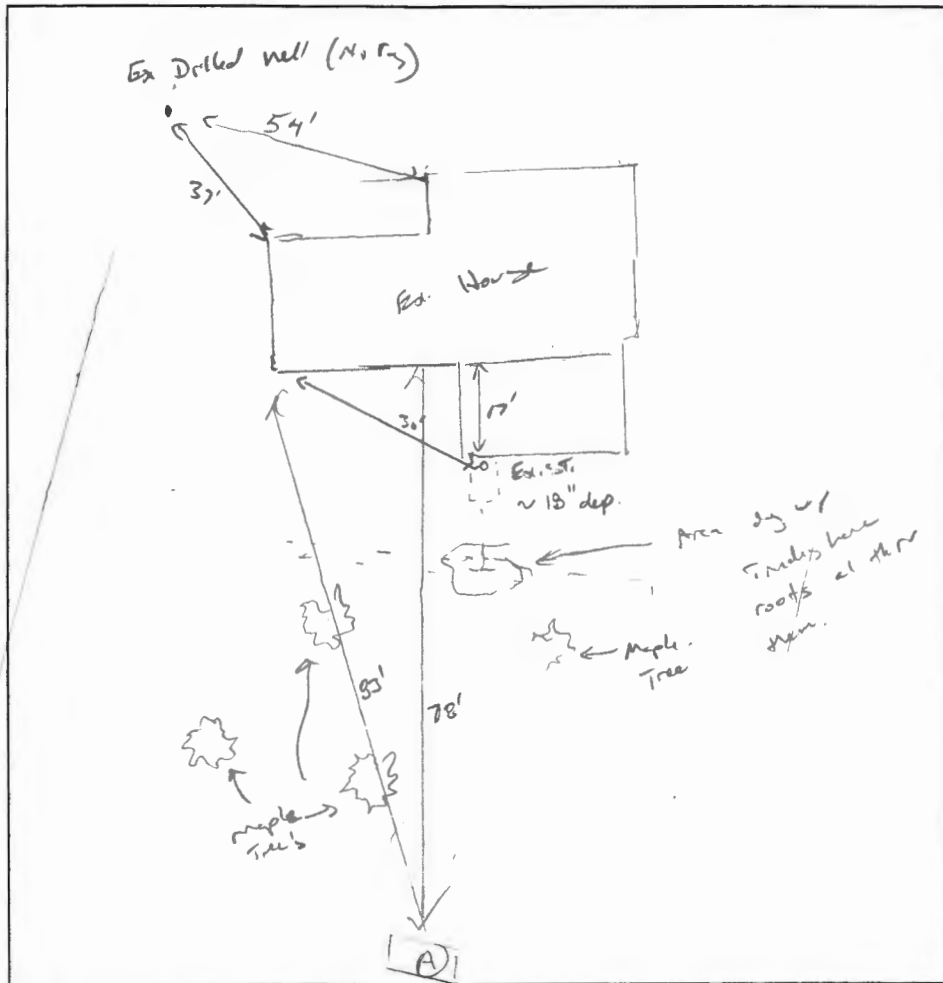 Ex Drilled well (No Tag)
54'
37'
Ex. House
17'
30'
Ex. S.T.
~ 18" dep.
Area dug up
Trades have
roots at
them.
Maple
Tree
83'
78'
Maple
Tree's
A